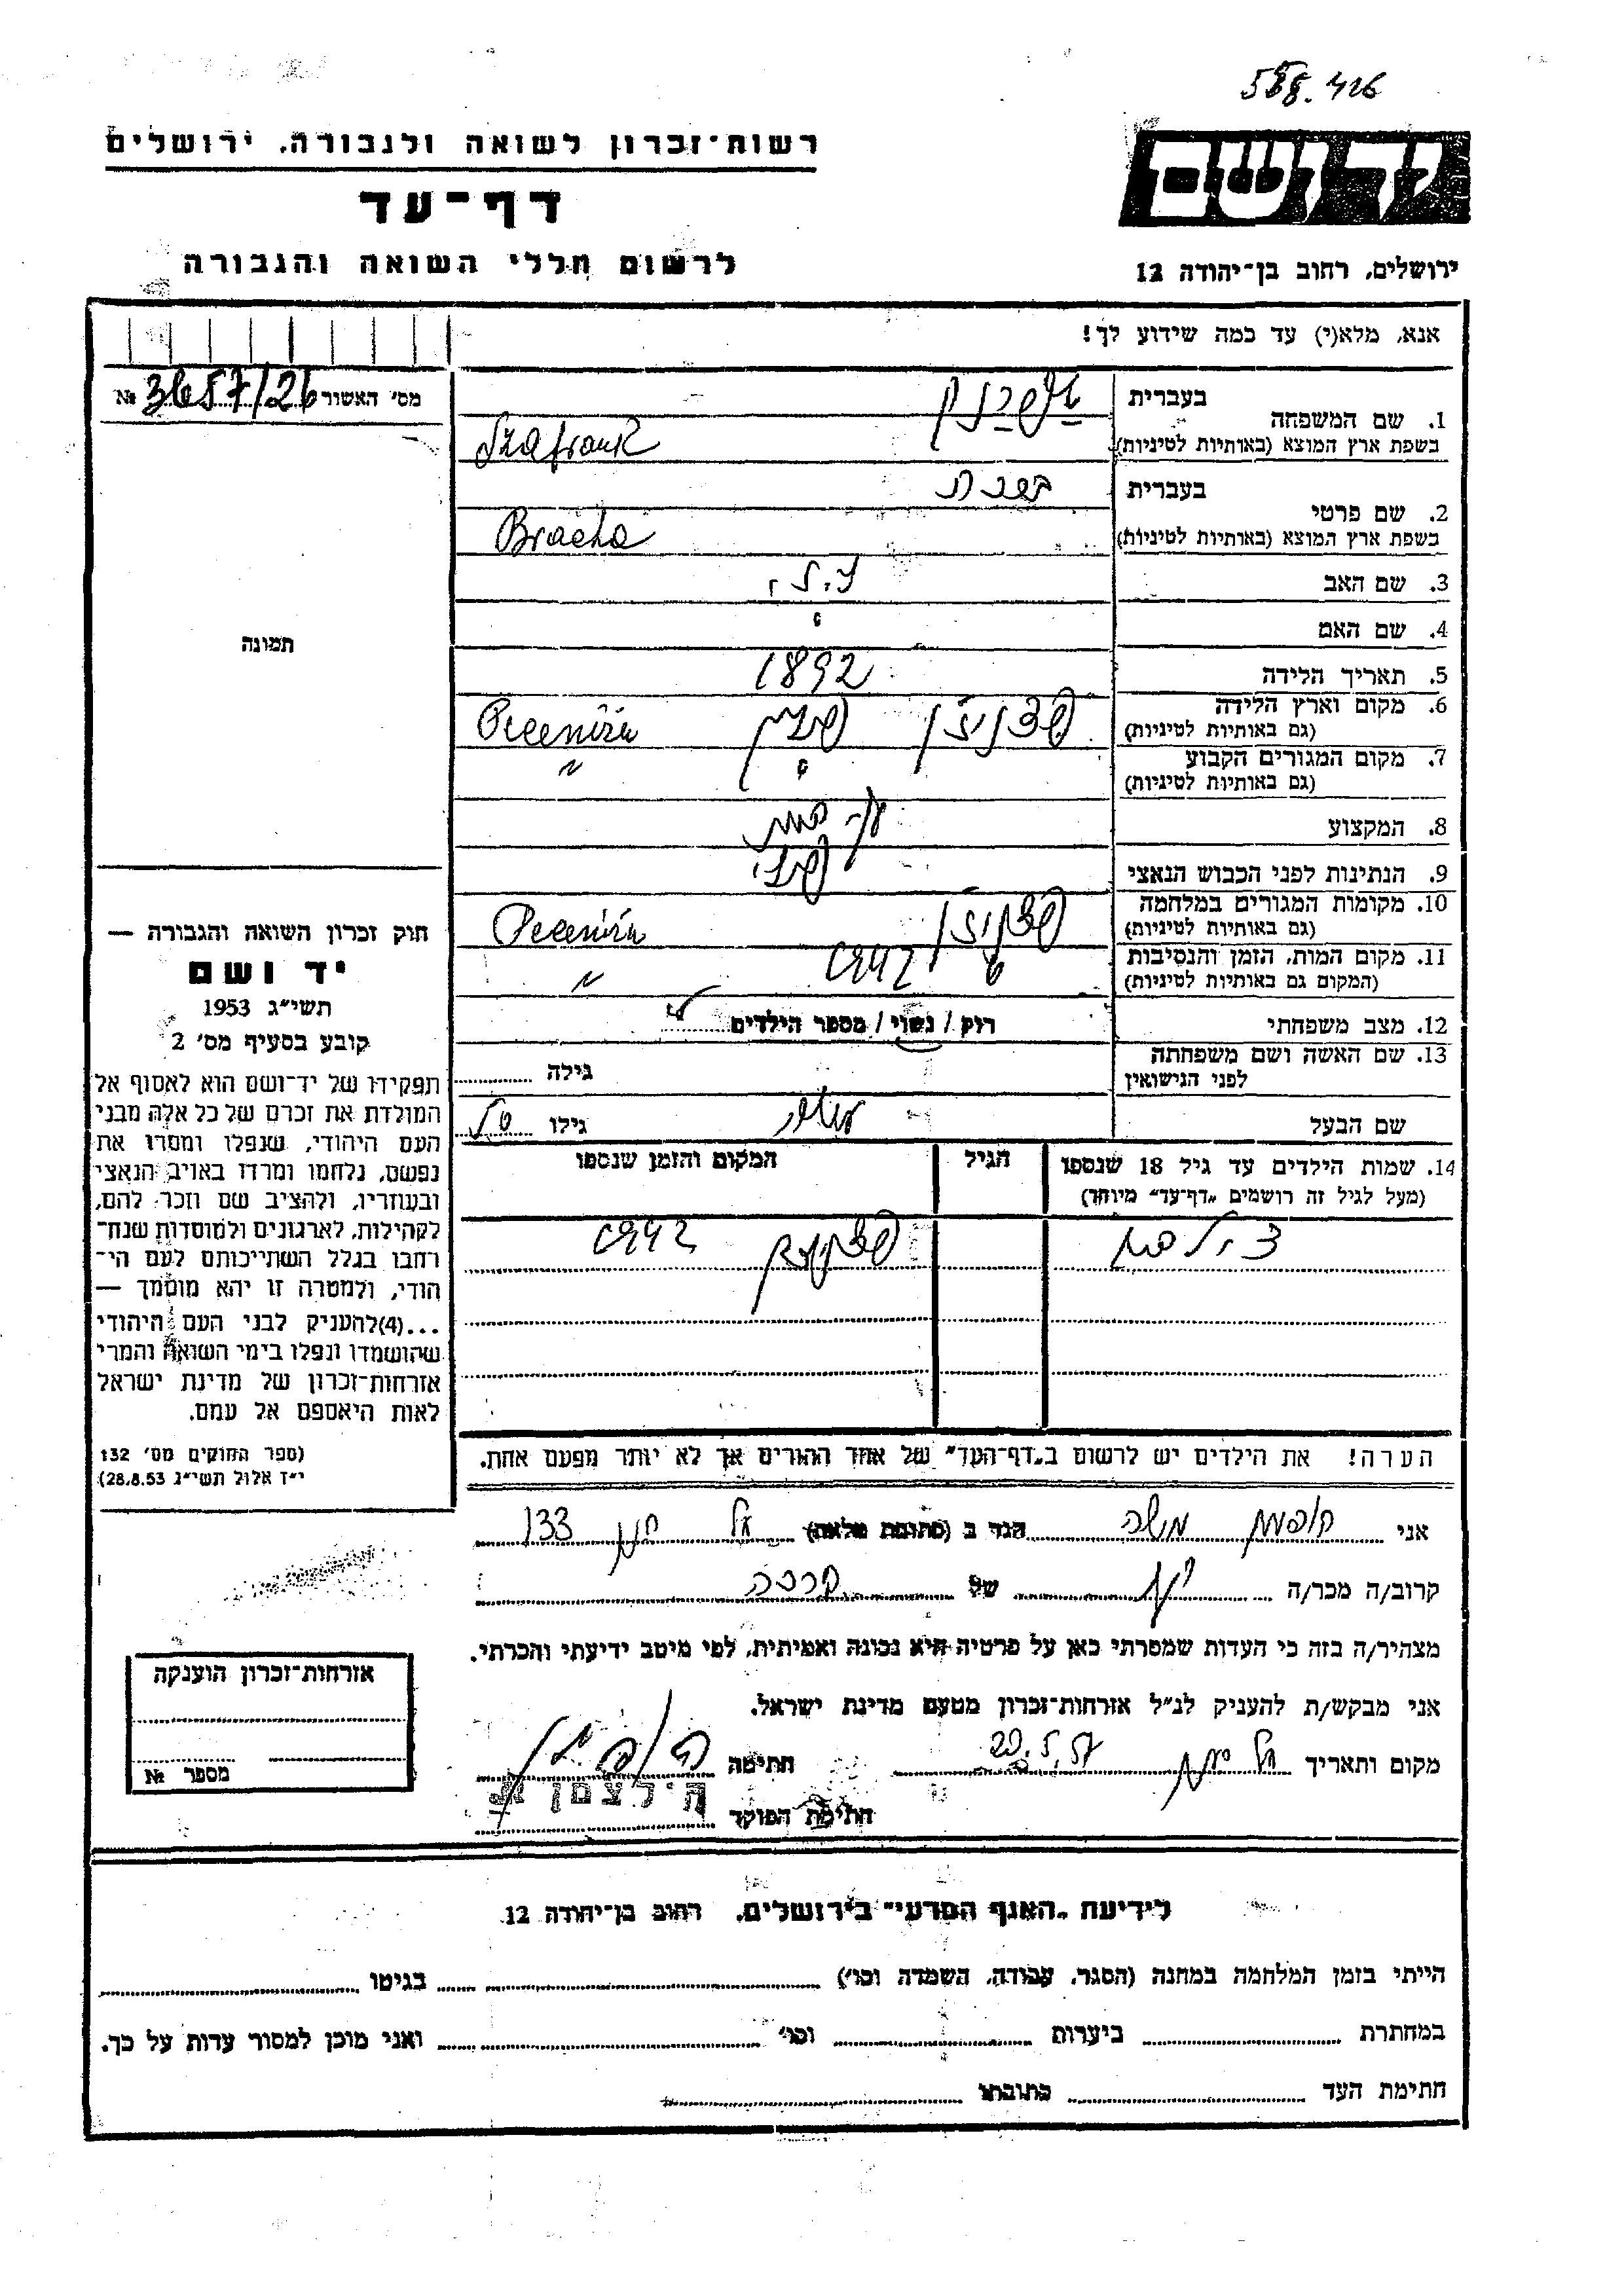 588.426
ידושם
רשות־זכרון לשואה ולגבורה, ירושלים
דף־עד
לרשום חללי השואה והגבורה
ירושלים, רחוב בן־יהודה 12
אנא, מלא(י) עד כמה שידוע לך!
מס׳ האשור 3657/26 №
1. שם המשפחה
בעברית שפרנק
בשפת ארץ המוצא (באותיות לטיניות) Szafrank
2. שם פרטי
בעברית
בשפת ארץ המוצא (באותיות לטיניות) Bracha
3. שם האב
4. שם האם
5. תאריך הלידה 1892
6. מקום וארץ הלידה
(גם באותיות לטיניות)
7. מקום המגורים הקבוע
(גם באותיות לטיניות)
8. המקצוע
9. הנתינות לפני הכבוש הנאצי
10. מקומות המגורים במלחמה
(גם באותיות לטיניות)
11. מקום המות, הזמן והנסיבות 1942
(המקום גם באותיות לטיניות)
12. מצב משפחתי רוק / נשוי / מספר הילדים
13. שם האשה ושם משפחתה
לפני הנישואין גילה
שם הבעל גילו
14. שמות הילדים עד גיל 18 שנספו הגיל המקום והזמן שנספו
(מעל לגיל זה רושמים „דף־עד״ מיוחד)
1942
הערה! את הילדים יש לרשום ב„דף־העד״ של אחד ההורים אך לא יותר מפעם אחת.
תמונה
חוק זכרון השואה והגבורה —
יד ושם
תשי״ג 1953
קובע בסעיף מס׳ 2
תפקידו של יד־ושם הוא לאסוף אל
המולדת את זכרם של כל אלה מבני
העם היהודי, שנפלו ומסרו את
נפשם, נלחמו ומרדו באויב הנאצי
ובעוזריו, ולהציב שם וזכר להם,
לקהילות, לארגונים ולמוסדות שנח־
רחבו בגלל השתייכותם לעם הי־
הודי, ולמטרה זו יהא מוסמך —
...(4)להעניק לבני העם היהודי
שהושמדו ונפלו בימי השואה והמרי
אזרחות־זכרון של מדינת ישראל
לאות היאספם אל עמם.
(ספר החוקים מס׳ 132
י״ד אלול תשי״ג 28.8.53)
אני משה הגר ב (כתובת מלאה) 133
קרוב/ה מכר/ה של ברכה
מצהיר/ה בזה כי העדות שמסרתי כאן על פרטיה היא נכונה ואמיתית, לפי מיטב ידיעתי והכרתי.
אני מבקש/ת להעניק לנ״ל אזרחות־זכרון מטעם מדינת ישראל.
מקום ותאריך 20.5.57 חתימה
חתימת הפוקד
אזרחות־זכרון הוענקה
מספר №
לידיעת „האגף המדעי״ בירושלים, רחוב בן־יהודה 12
הייתי בזמן המלחמה במחנה (הסגר, עבודה, השמדה וכו׳) בגיטו
במחתרת ביערות וכו׳ ואני מוכן למסור עדות על כך.
חתימת העד כתובתו